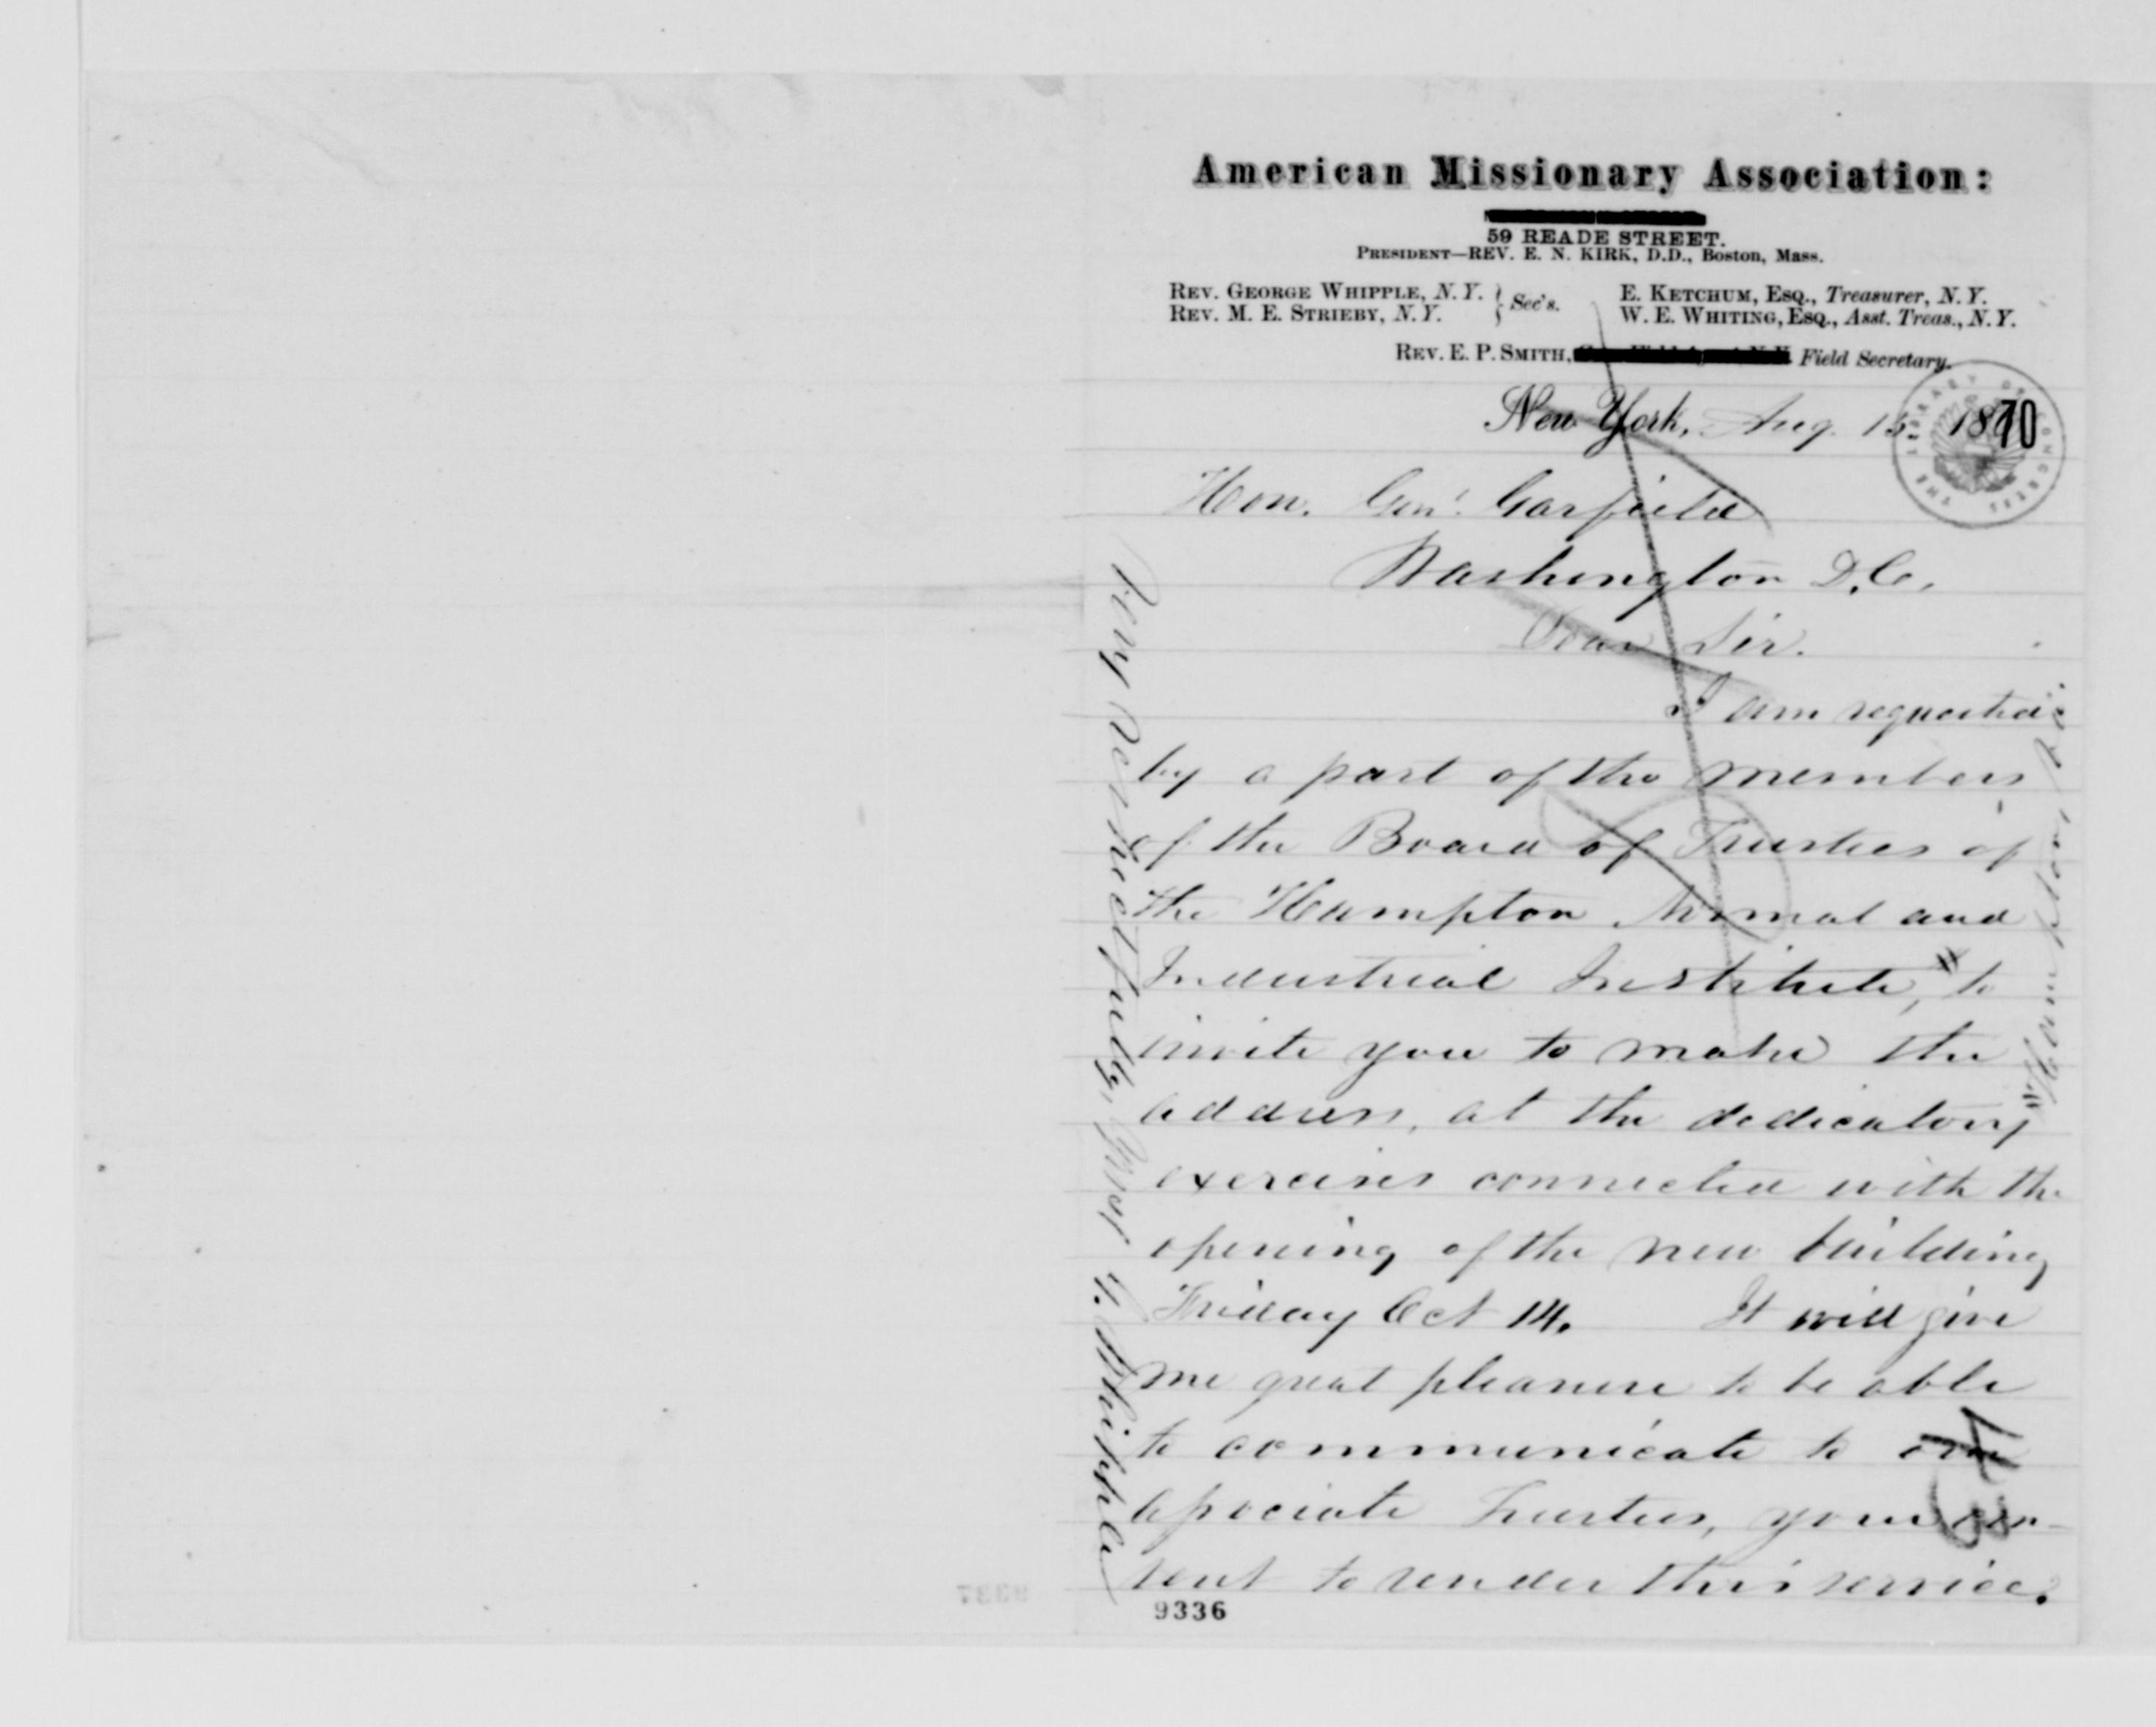 American Missionary Association:
59 READE STREET.
PRESIDENT—REV. E. N. KIRK, D.D., Boston, Mass.
REV. GEORGE WHIPPLE, N. Y. } Sec's.
REV. M. E. STRIEBY, N. Y.
E. KETCHUM, ESQ., Treasurer, N. Y.
W. E. WHITING, ESQ., Asst. Treas., N. Y.
REV. E. P. SMITH, Field Secretary.
New York, Aug. 15 1870
Hon. Gen'l Garfield
Washington D.C.
Dear Sir.
I am requested
by a part of the members
of the Board of Trustees of
the Hampton Normal and
Industrial Institute," to
invite you to make the
address, at the dedicatory
exercises connected with the
opening of the new building
Friday Oct 14. It will give
me great pleasure to be able
to communicate to our
associate Trustees, your con-
sent to render this service.
Very respectfully, yours G. Whipple
"Hampton, Va.
43
9336
9337